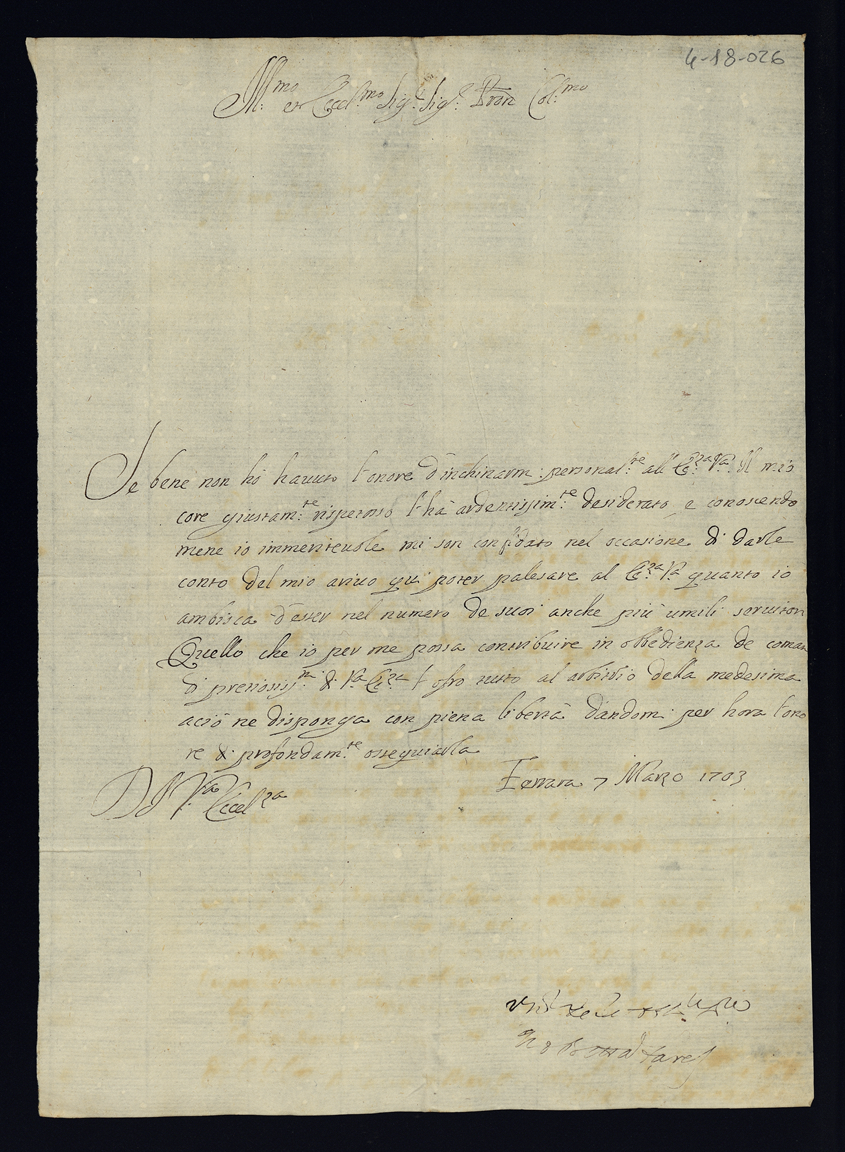 4-18-026
Ill.mo et Eccel.mo Sig.r Sig.r Pron Col.mo
Se bene non hò hauuto l'onore d'inchinarmi personal.te all'E.za V.a Il mio
core giustam.te rispetoso l'hà ardentissim.te desiderato, e conoscendo
mene io immeriteuole mi son confidato nel occasione di darle
conto del mio ariuo quì poter palesare al E.za V.a quanto io
ambisca d'esser nel numero de suoi anche più umili seruitori
Quello che io per me possa contribuire in obbedienza de coman
di pretiosis.mi di V.a E.za l'ofro tutto al arbitrio della medesima
aciò ne disponga con piena libertà dandomi per hora l'ono
re di profondam.te ossequiarla
Ferrara 7 Marzo 1703
Di V.ra Eccel.za